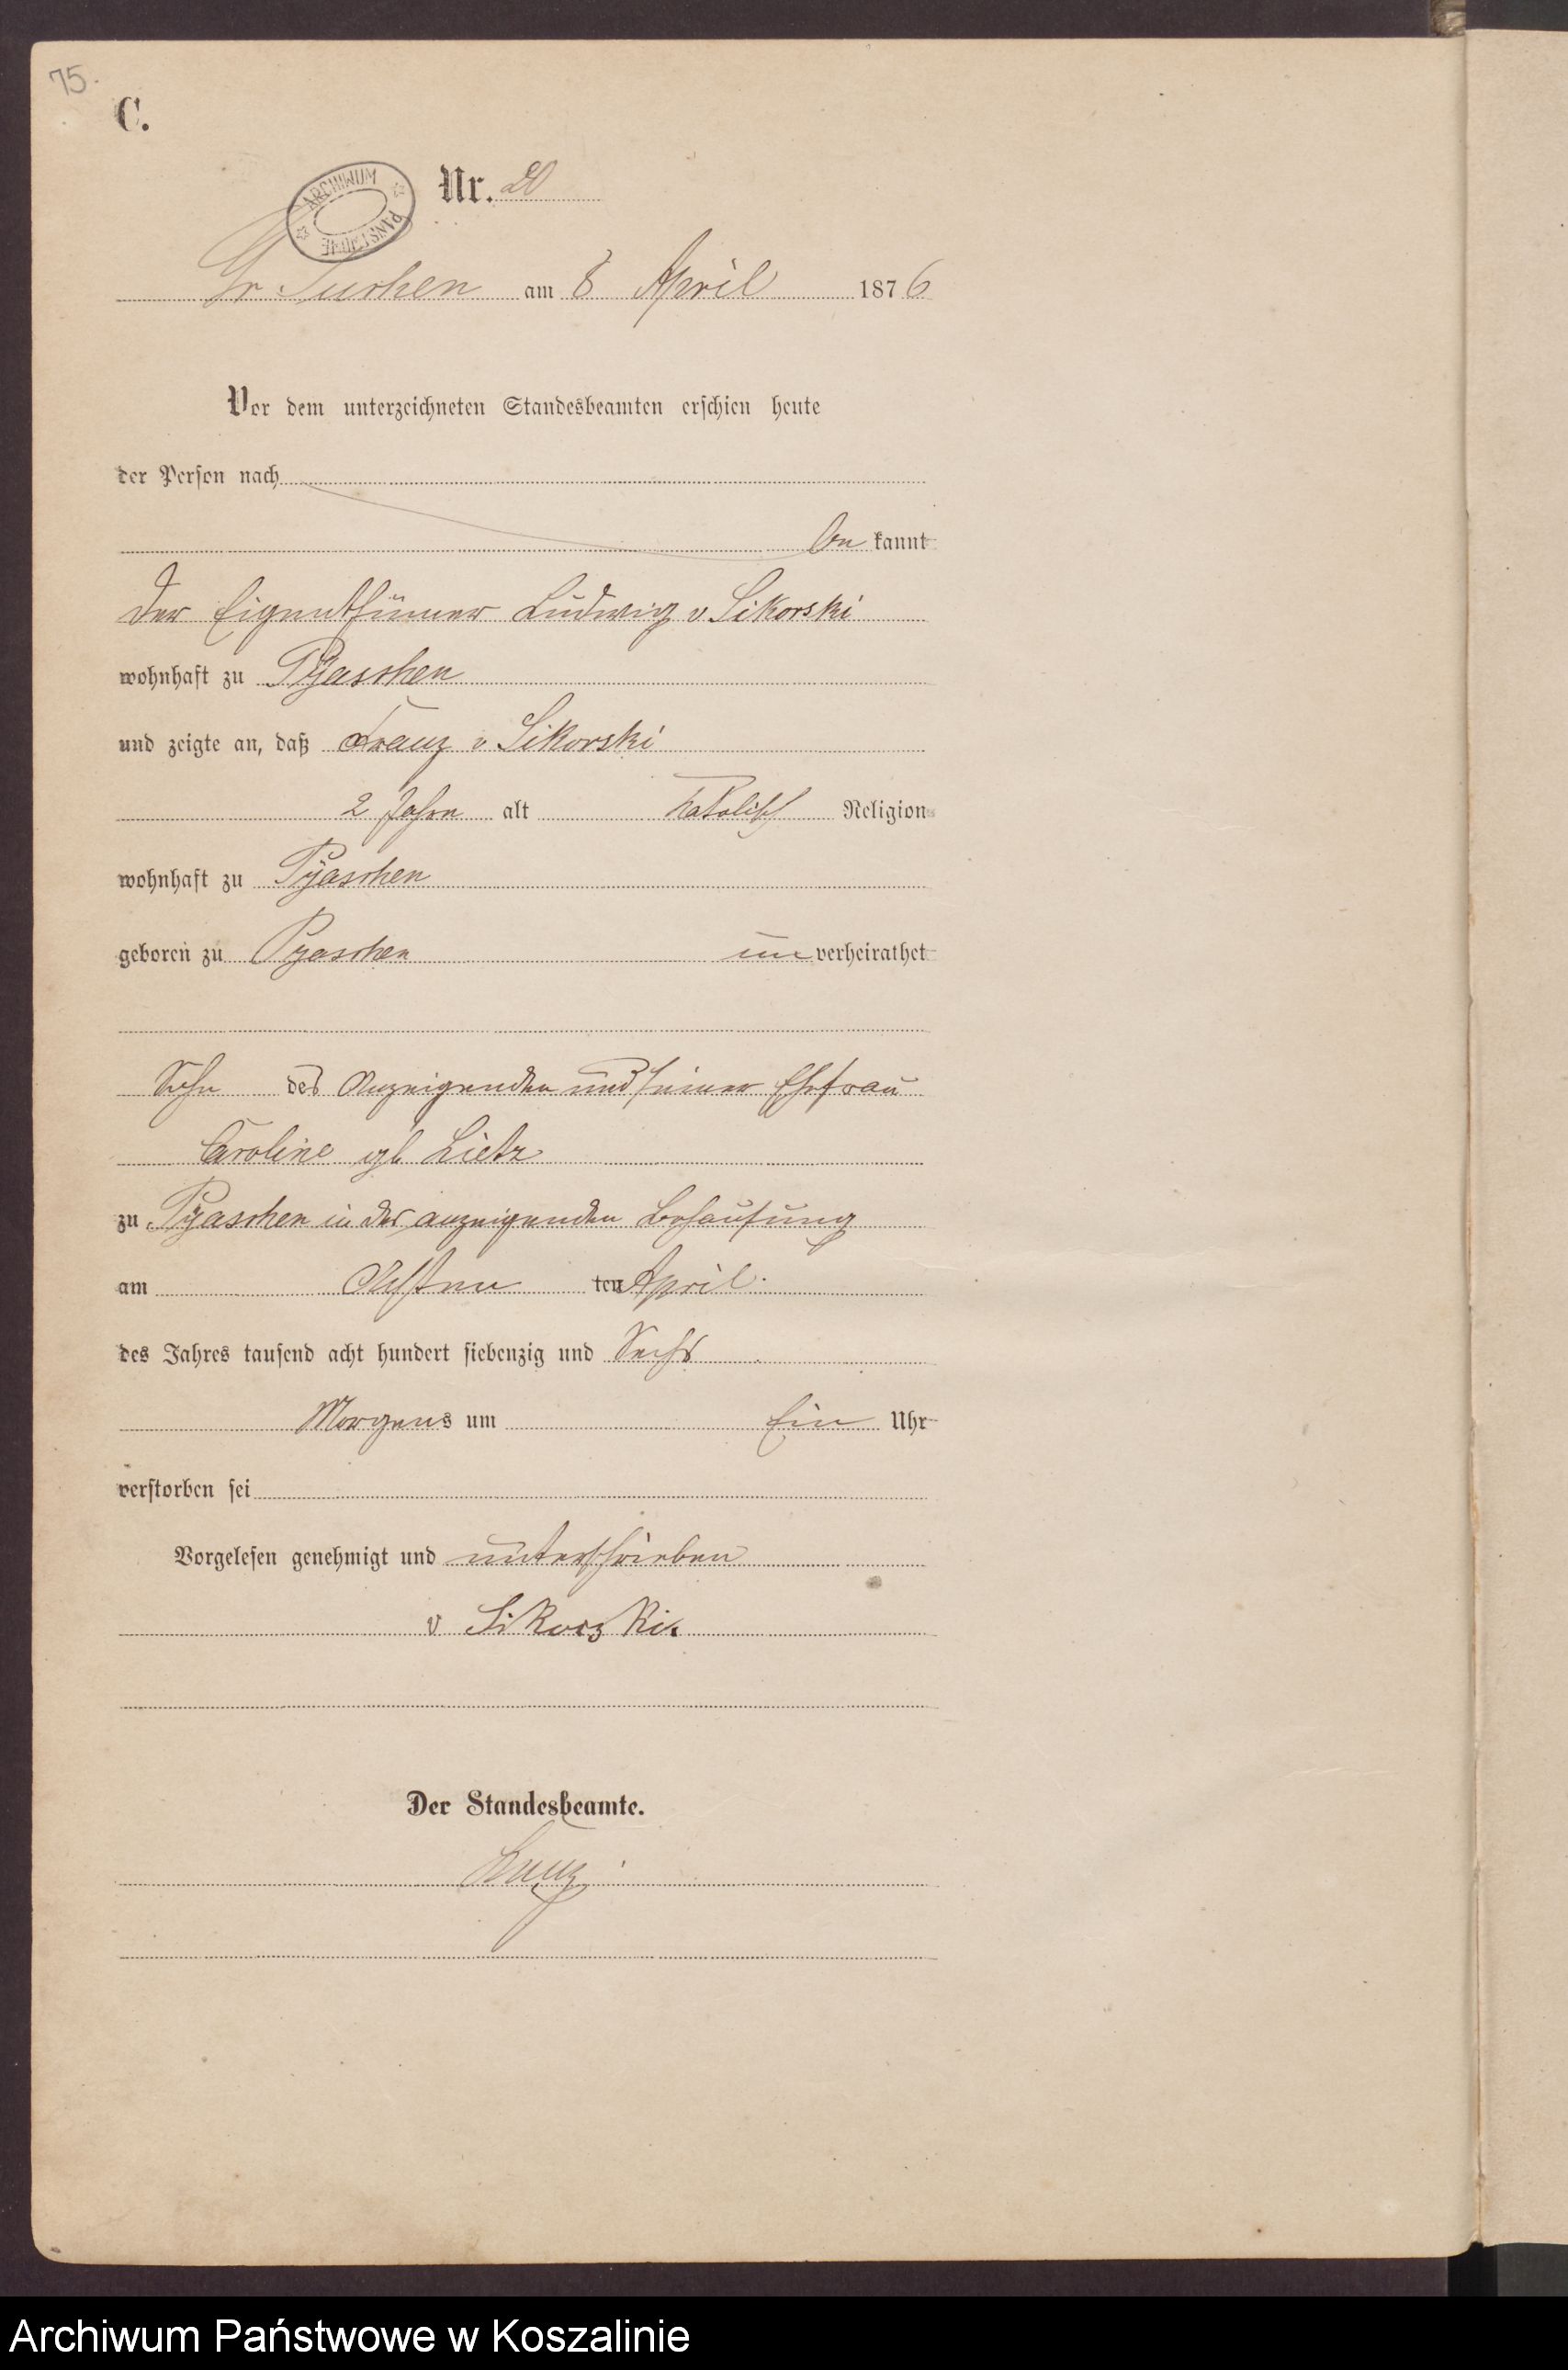 75.
C.
ARCHIWUM PAŃSTWOWE
Nr. 20
Gr Tuchen am 8 April 1876
Vor dem unterzeichneten Standesbeamten erschien heute
der Person nach
be kannt
der Eigenthümer Ludwig v Sikorski
wohnhaft zu Pyaschen
und zeigte an, daß Franz v Sikorski
2 Jahre alt katolisch Religion
wohnhaft zu Pyaschen
geboren zu Pyaschen un verheirathet
Sohn des Anzeigenden und seiner Ehefrau
Caroline geb Lietz
zu Pyaschen in der anzeigenden Behausung
am Achten ten April.
des Jahres tausend acht hundert siebenzig und Sechs
Morgens um Ein Uhr
verstorben sei
Vorgelesen genehmigt und unterschrieben
v Sikorzki.
Der Standesbeamte.
Archiwum Państwowe w Koszalinie